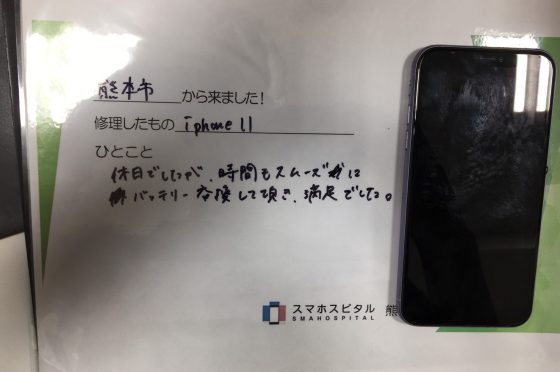 熊本市 から来ました!
修理したもの iphone 11
ひとこと
休日でしたが、時間もスムーズに
バッテリー交換して頂き、満足でした。
スマホスピタル 熊
SMAHOSPITAL